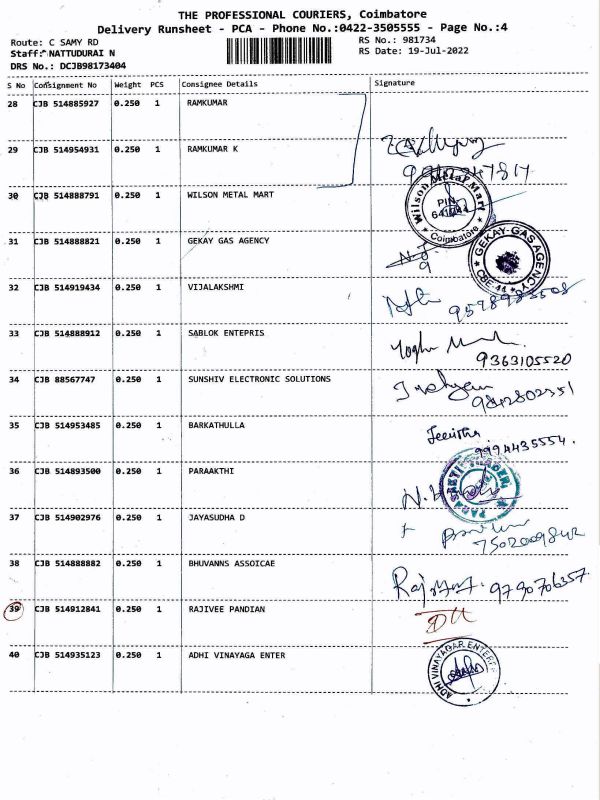 THE PROFESSIONAL COURIERS, Coimbatore
Delivery Runsheet - PCA - Phone No.:0422-3505555 - Page No.:4
Route: C SAMY RD
RS No.: 981734
Staff: NATTUDURAI N
RS Date: 19-Jul-2022
DRS No.: DCJB98173404
S No Consignment No Weight PCS Consignee Details Signature
28 CJB 514885927 0.250 1 RAMKUMAR
29 CJB 514954931 0.250 1 RAMKUMAR K
30 CJB 514888791 0.250 1 WILSON METAL MART
Wilson Metal Mart
PIN
Coimbatore
31 CJB 514888821 0.250 1 GEKAY GAS AGENCY
GEKAY GAS AGENCY
CBE-44
32 CJB 514919434 0.250 1 VIJALAKSHMI
33 CJB 514888912 0.250 1 SABLOK ENTEPRIS
9363105520
34 CJB 88567747 0.250 1 SUNSHIV ELECTRONIC SOLUTIONS
9842802351
35 CJB 514953485 0.250 1 BARKATHULLA
9994435554.
36 CJB 514893500 0.250 1 PARAAKTHI
37 CJB 514902976 0.250 1 JAYASUDHA D
7502009842
38 CJB 514888882 0.250 1 BHUVANNS ASSOICAE
9790706357
39 CJB 514912841 0.250 1 RAJIVEE PANDIAN
40 CJB 514935123 0.250 1 ADHI VINAYAGA ENTER
ADHI VINAYAGAR